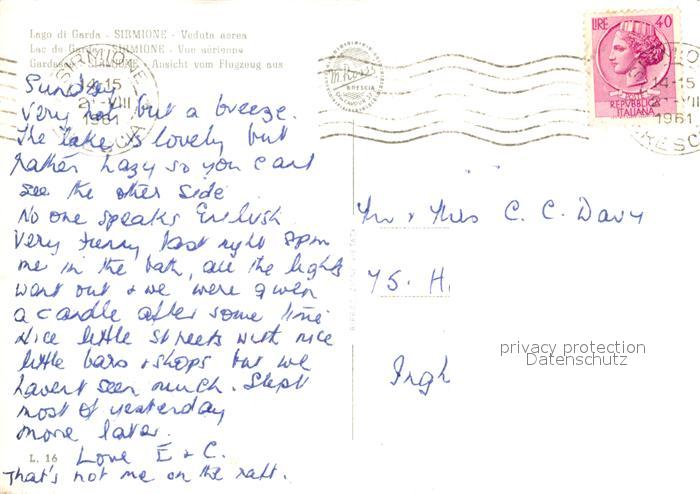 Lago di Garda - SIRMIONE - Veduta aerea
Lac de Garde - SIRMIONE - Vue aérienne
Gardasee - SIRMIONE - Ansicht vom Flugzeug aus
Sunday
Very but a breeze.
The lake is lovely but
rather hazy so you cant
see the other side
No one speaks English
Very funny last night 9pm
me in the bath, all the lights
went out & we were given
a candle after some time
Nice little streets with nice
little bars & shops but we
havent seen much. Slept
most of yesterday
more later.
L. 16 Love E & C.
That's not me on the raft.
SIRMIONE
14-15
2 -VIII
1961
BRESCIA
BRESCIA
LIRE 40
POSTE
REPVBBLICA
ITALIANA
14-15
-VIII
1961
BRESCIA
Mr & Mrs C. C. Davy
75. H
Ingh
privacy protection
Datenschutz